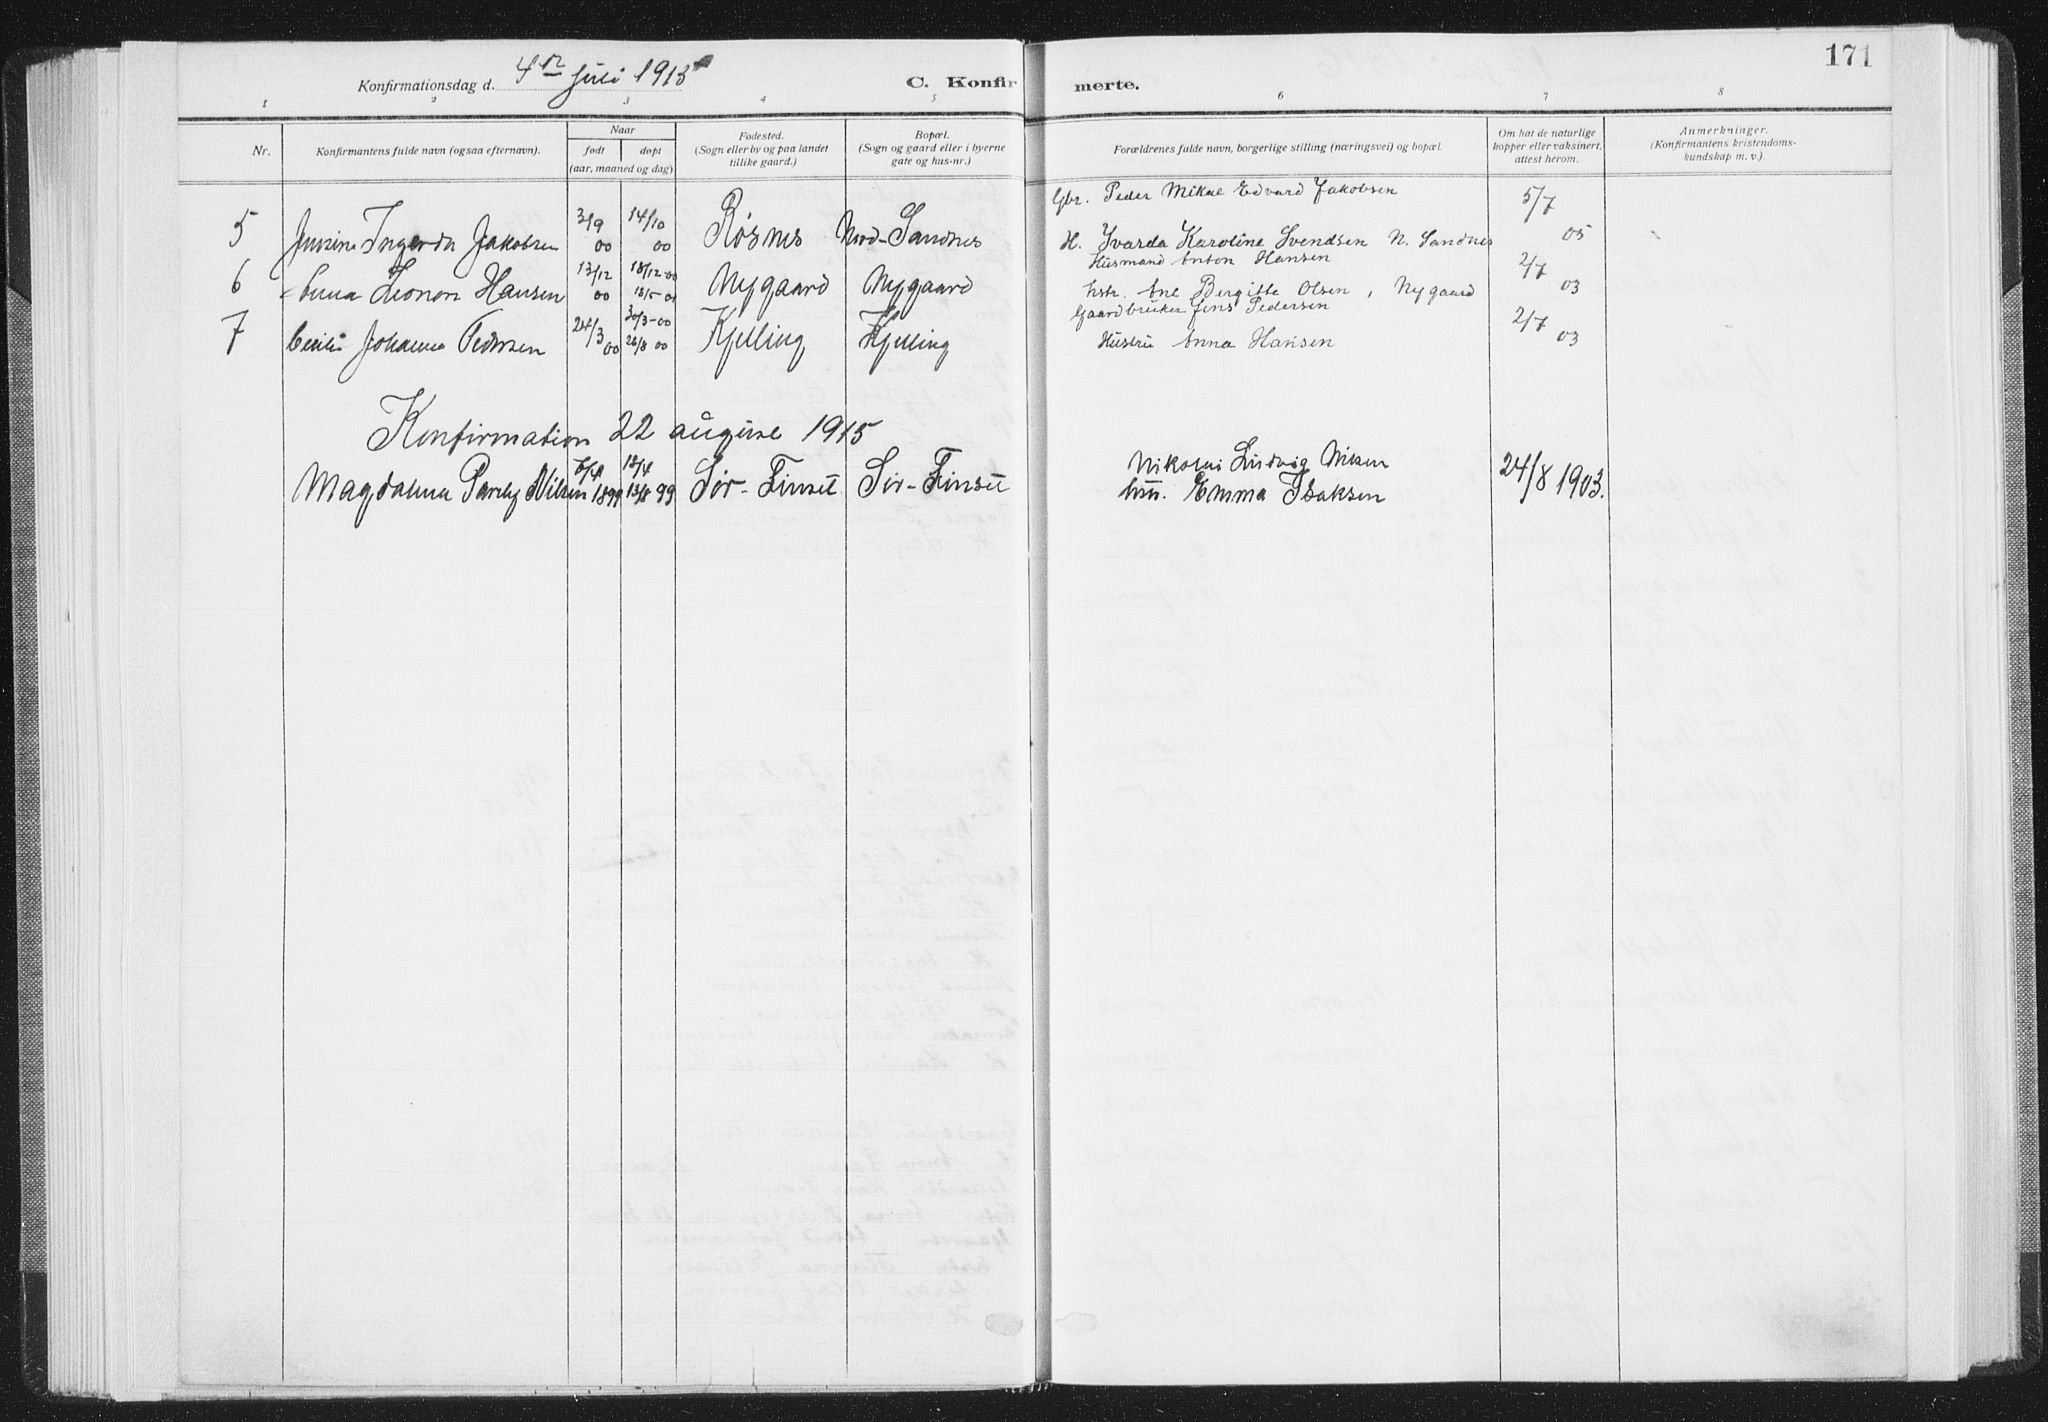 171
Konfirmationsdag d. 4de juli 1915
C. Konfirmerte.
1 2 3 4 5 6 7 8
Nr.
Konfirmantens fulde navn (ogsaa efternavn).
Naar
født
døpt
(aar, maaned og dag)
Fødested.
(Sogn eller by og paa landet
tillike gaard.)
Bopæl.
(Sogn og gaard eller i byerne
gate og hus-nr.)
Forældrenes fulde navn, borgerlige stilling (næringsvei) og bopæl.
Om hat de naturlige
kopper eller vaksinert,
attest herom.
Anmerkninger.
(Konfirmantens kristendoms-
kundskap m. v.).
Gbr. Peder Mikal Edvard Jakobsen 5/7
5 Ingerda Jakobsen 3/9 00 14/10 00 Røsnes Nord-Sandnes H. Ivarda Karoline Svendsen N. Sandnes 05
Husmand Anton Hansen 2/7
6 Anna Leonora Hansen 13/12 00 18/12 00 Nygaard Nygaard hstr. Ane Bergitte Olsen, Nygaard 03
Gaardbruker Jens Pedersen 2/7
7 Cecilie Johanna Pedersen 24/3 00 30/3-00 26/8 00 Kjelling Kjelling Hustru Anna Hansen 03
Konfirmation 22 august 1915
Nikolai Ludvig Nilsen
Magdalena Nilsen 1899 18/4 13/8 99 Sør-Finset Sør-Finset hstr. Emma Isaksen 24/8 1903.